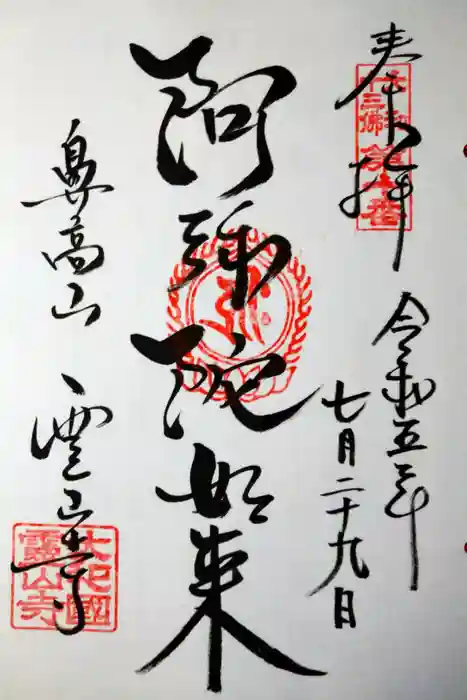 奉拝
令和五年
七月二十九日
阿弥陀如来
鼻高山
霊山寺
十三佛
大和國
靈山寺